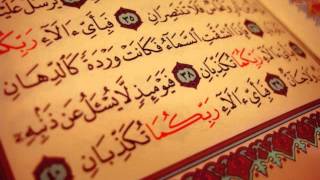 يُرْسَلُ
تَنتَصِرَانِ ٣٥ فَبِأَيِّ ءَالَآءِ رَبِّكُمَا
ٱنشَقَّتِ ٱلسَّمَآءُ فَكَانَتْ وَرْدَةً كَٱلدِّهَانِ
رَبِّكُمَا تُكَذِّبَانِ ٣٨ فَيَوْمَئِذٍ لَّا يُسْـَٔلُ عَن ذَنۢبِهِۦٓ
فَبِأَيِّ ءَالَآءِ رَبِّكُمَا تُكَذِّبَانِ